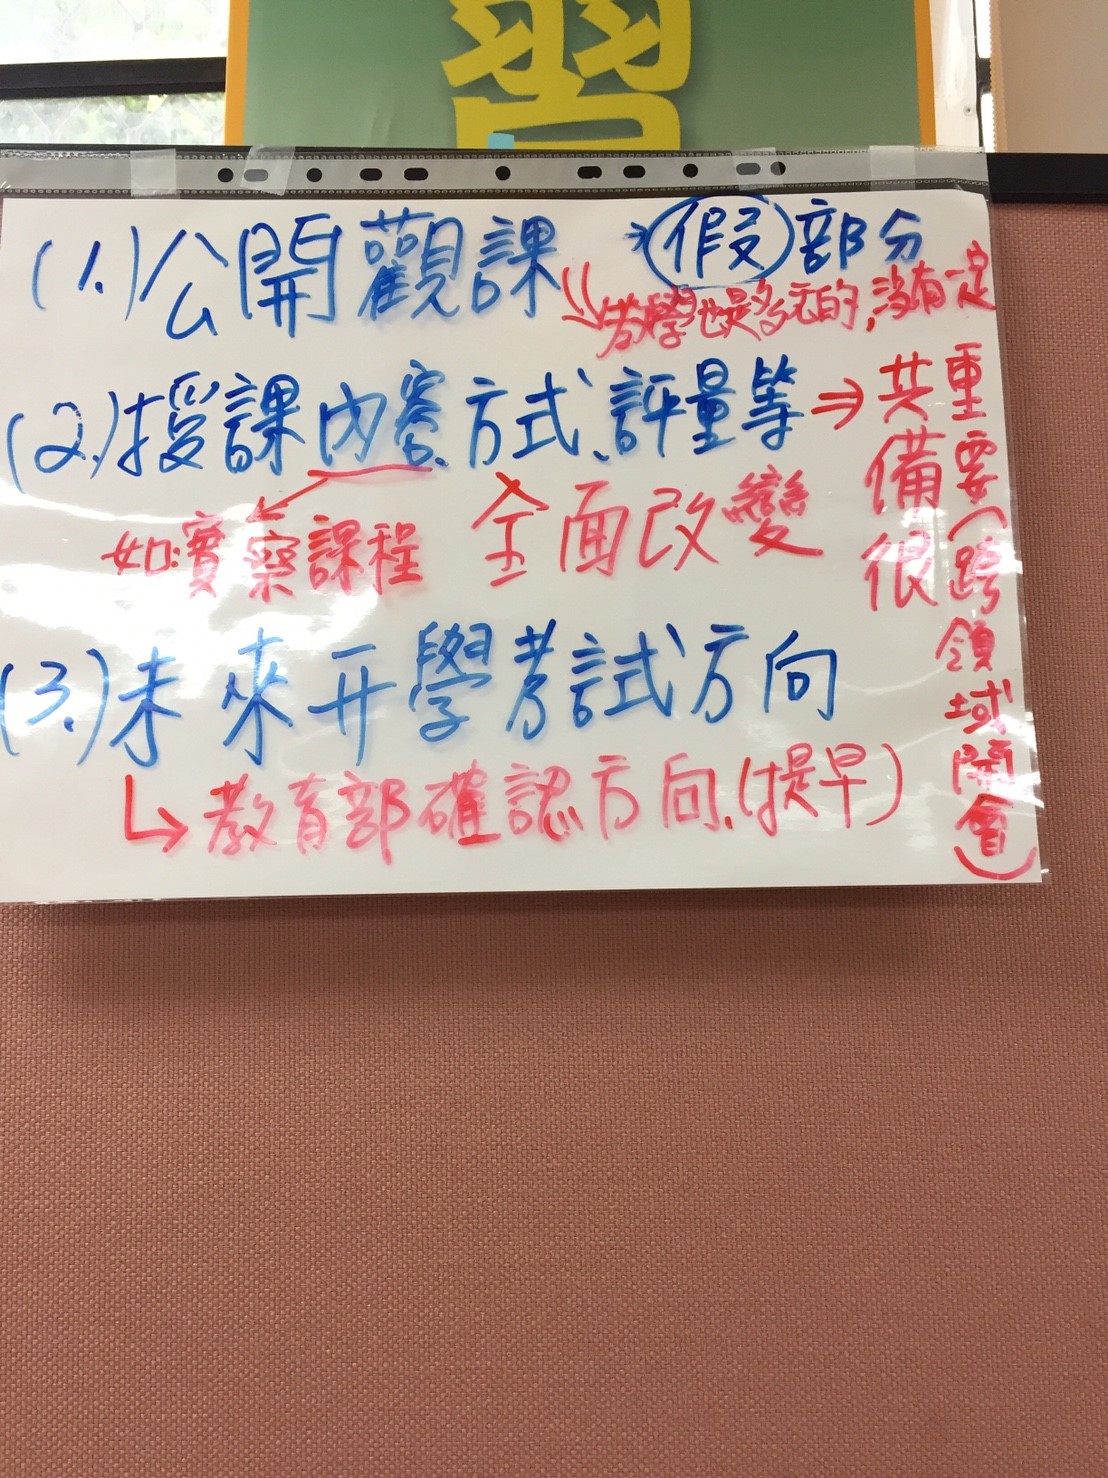 習
(1.)公開觀課→(假)部分
教學也是多元的,沒有一定
(2.)授課內容、方式、評量等⇒共備很重要(跨領域開會)
如:實察課程 全面改變
(3.)未來升學考試方向
教育部確認方向.(提早)